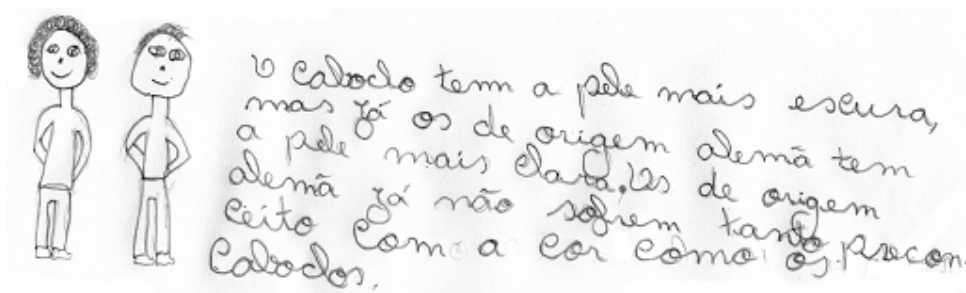 O caboclo tem a pele mais escura,
mas já os de origem alemã tem
a pele mais clara. Os de origem
alemã já não sofrem tanto precon-
ceito com a cor como os
Caboclos.